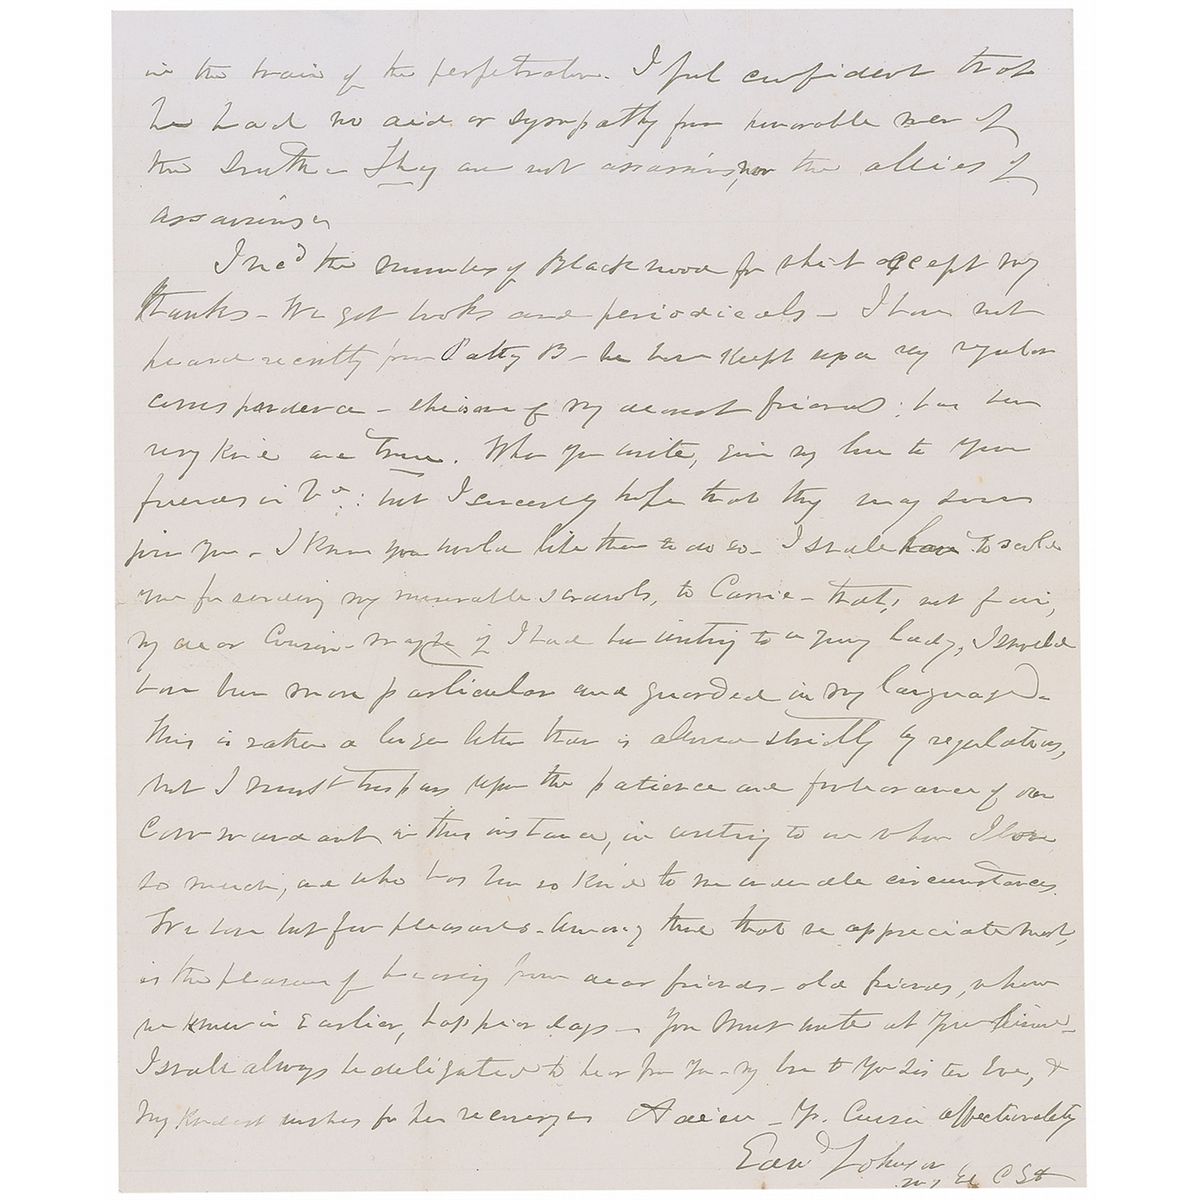 in the train of the perpetrator. I feel confident that
he had no aid or sympathy from honorable men of
the South - They are not assassins, nor the allies of
assassins -
I rec'd the number of Blackwood for which accept my
thanks - We get books and periodicals - I have not
heard recently from Patty B - have kept up a very regular
correspondence - she is one of my dearest friends: has been
very kind and true. When you write, give my love to your
friends in Va: but I sincerely hope that they may soon
join you - I know you would like them to do so - I shall have to scold
you for sending my miserable scrawls, to Carrie - that's not fair,
my dear Cousin - maybe if I had been writing to a young lady, I should
have been more particular and guarded in my language -
This is rather a longer letter than is allowed strictly by regulations,
but I must trespass upon the patience and forbearance of our
Commandant in this instance, in writing to one whom I love
so much, and who has been so kind to me under all circumstances.
We have but few pleasures - among those that we appreciate most,
is the pleasure of hearing from dear friends - old friends, whom
we knew in Earlier, happier days - You must write at your leisure -
I shall always be delighted to hear from you - my love to your Sister Eve, &
my kindest wishes for her Adieu - Yr. Cousin affectionately
Edwd Johnson
C St